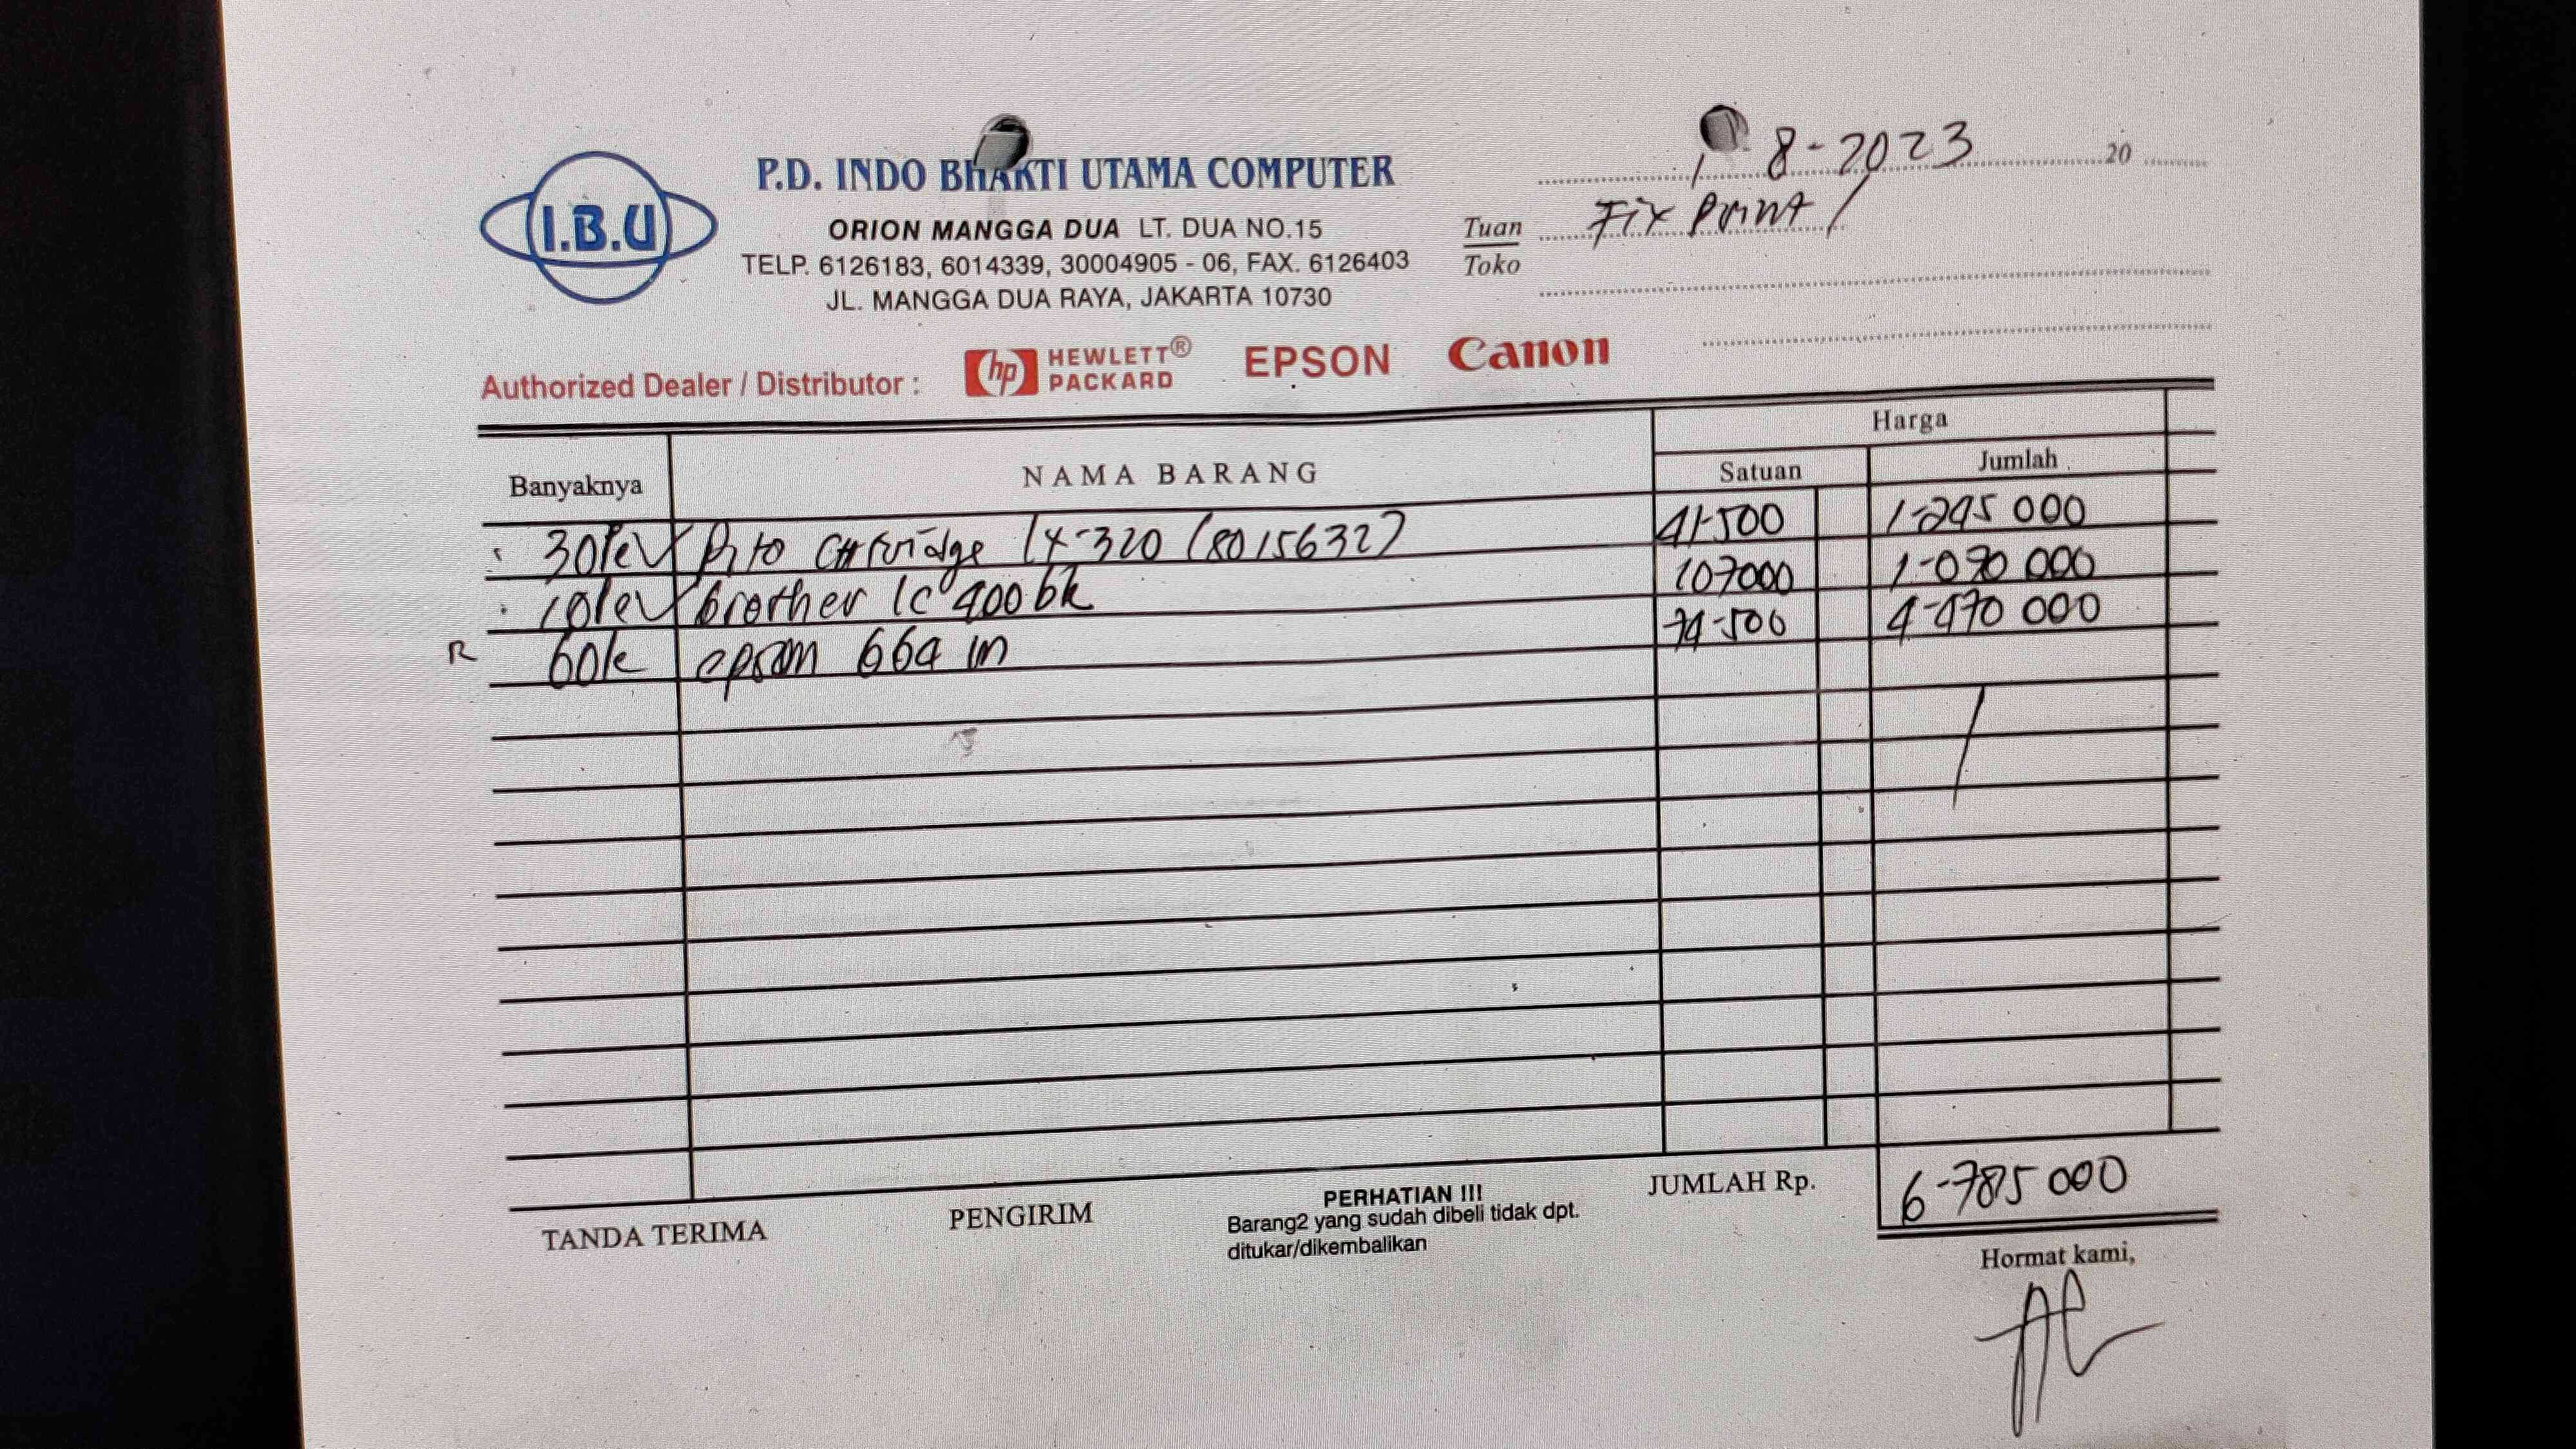 I.B.U
P.D. INDO BHAKTI UTAMA COMPUTER
ORION MANGGA DUA LT. DUA NO.15
TELP. 6126183, 6014339, 30004905 - 06, FAX. 6126403
JL. MANGGA DUA RAYA, JAKARTA 10730
8-2023 20
Tuan Fix Print
Toko
Authorized Dealer / Distributor : hp HEWLETT® PACKARD EPSON Canon
Banyaknya NAMA BARANG Harga
Satuan Jumlah
30 Cartridge LX-320 (8015632) 41-500 1-245 000
10 brother lc 400 bk 107000 1-070 000
R 60 epson 664 m 74-500 4-470 000
JUMLAH Rp. 6-785 000
TANDA TERIMA PENGIRIM
PERHATIAN !!!
Barang2 yang sudah dibeli tidak dpt.
ditukar/dikembalikan
Hormat kami,